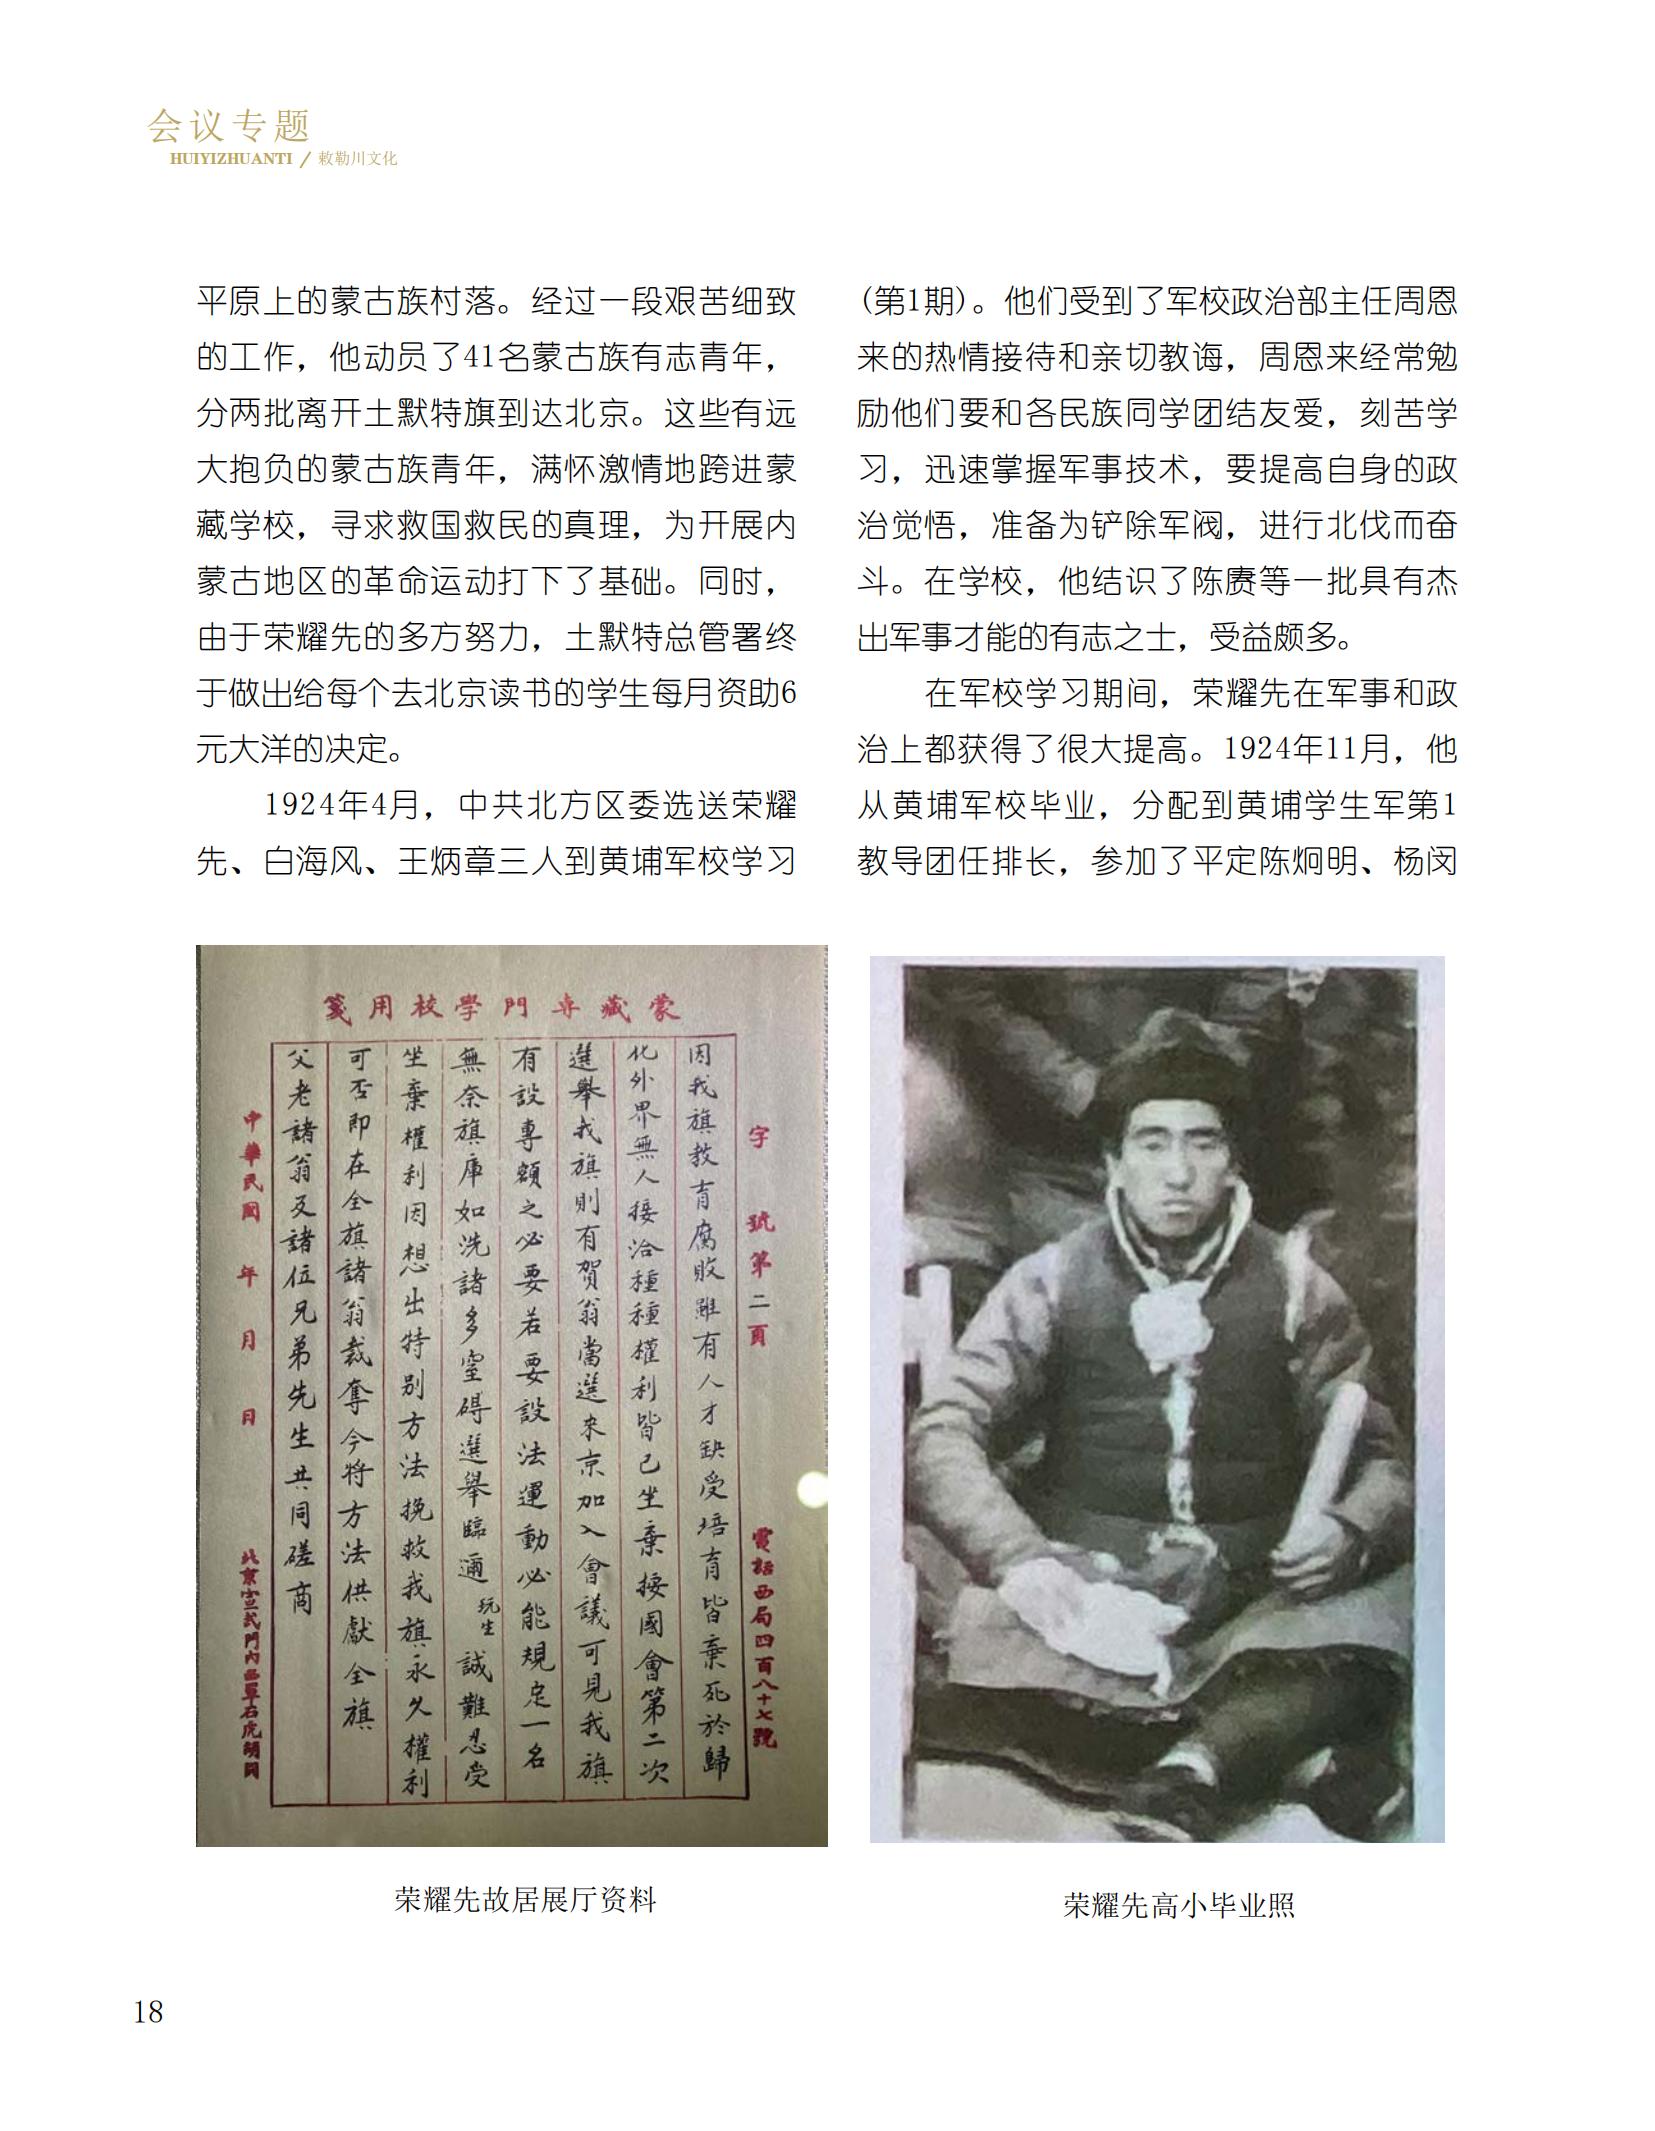 会议专题
HUIYIZHUANTI / 敕勒川文化
平原上的蒙古族村落。经过一段艰苦细致
的工作，他动员了41名蒙古族有志青年，
分两批离开土默特旗到达北京。这些有远
大抱负的蒙古族青年，满怀激情地跨进蒙
藏学校，寻求救国救民的真理，为开展内
蒙古地区的革命运动打下了基础。同时，
由于荣耀先的多方努力，土默特总管署终
于做出给每个去北京读书的学生每月资助6
元大洋的决定。
1924年4月，中共北方区委选送荣耀
先、白海风、王炳章三人到黄埔军校学习
(第1期)。他们受到了军校政治部主任周恩
来的热情接待和亲切教诲，周恩来经常勉
励他们要和各民族同学团结友爱，刻苦学
习，迅速掌握军事技术，要提高自身的政
治觉悟，准备为铲除军阀，进行北伐而奋
斗。在学校，他结识了陈赓等一批具有杰
出军事才能的有志之士，受益颇多。
在军校学习期间，荣耀先在军事和政
治上都获得了很大提高。1924年11月，他
从黄埔军校毕业，分配到黄埔学生军第1
教导团任排长，参加了平定陈炯明、杨闵
蒙藏専門學校用箋
字 號第二頁
電話西局四百八十七號
因我旗教育腐敗雖有人才缺受培育皆棄死於歸
化外界無人接洽種種權利皆已坐棄接國會第二次
選舉我旗則有賀翁當選來京加入會議可見我旗
有設專額之必要若要設法運動必能規定一名
無奈旗庫如洗諸多窒碍選舉臨邇玩生誠難忍受
坐棄權利因想出特別方法挽救我旗永久權利
可否即在全旗諸翁裁奪今将方法供獻全旗
父老諸翁及諸位兄弟先生共同磋商
中華民國 年 月 日
北京宣武門内西單石虎胡同
荣耀先故居展厅资料
荣耀先高小毕业照
18